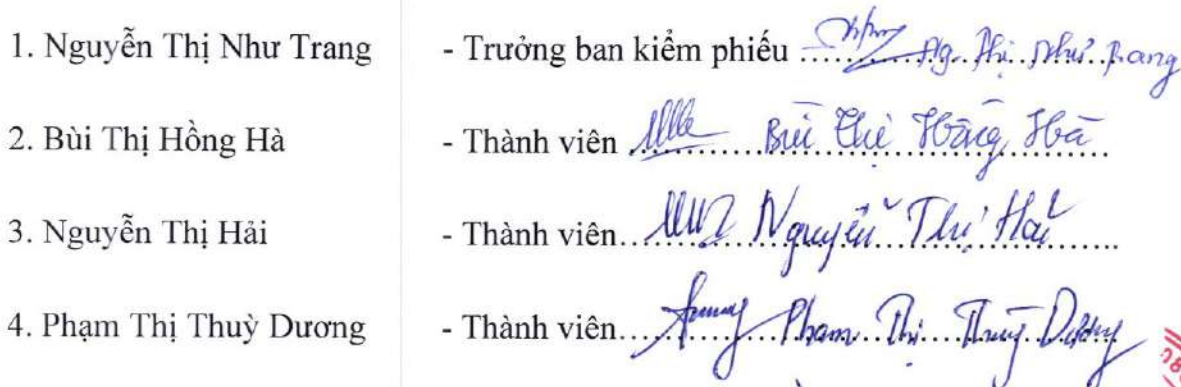 1. Nguyễn Thị Như Trang - Trưởng ban kiểm phiếu ........ Ng. Thị Như Trang
2. Bùi Thị Hồng Hà - Thành viên ........ Bùi Thị Hồng Hà
3. Nguyễn Thị Hải - Thành viên ........ Nguyễn Thị Hải
4. Phạm Thị Thuỳ Dương - Thành viên ........ Phạm Thị Thuỳ Dương